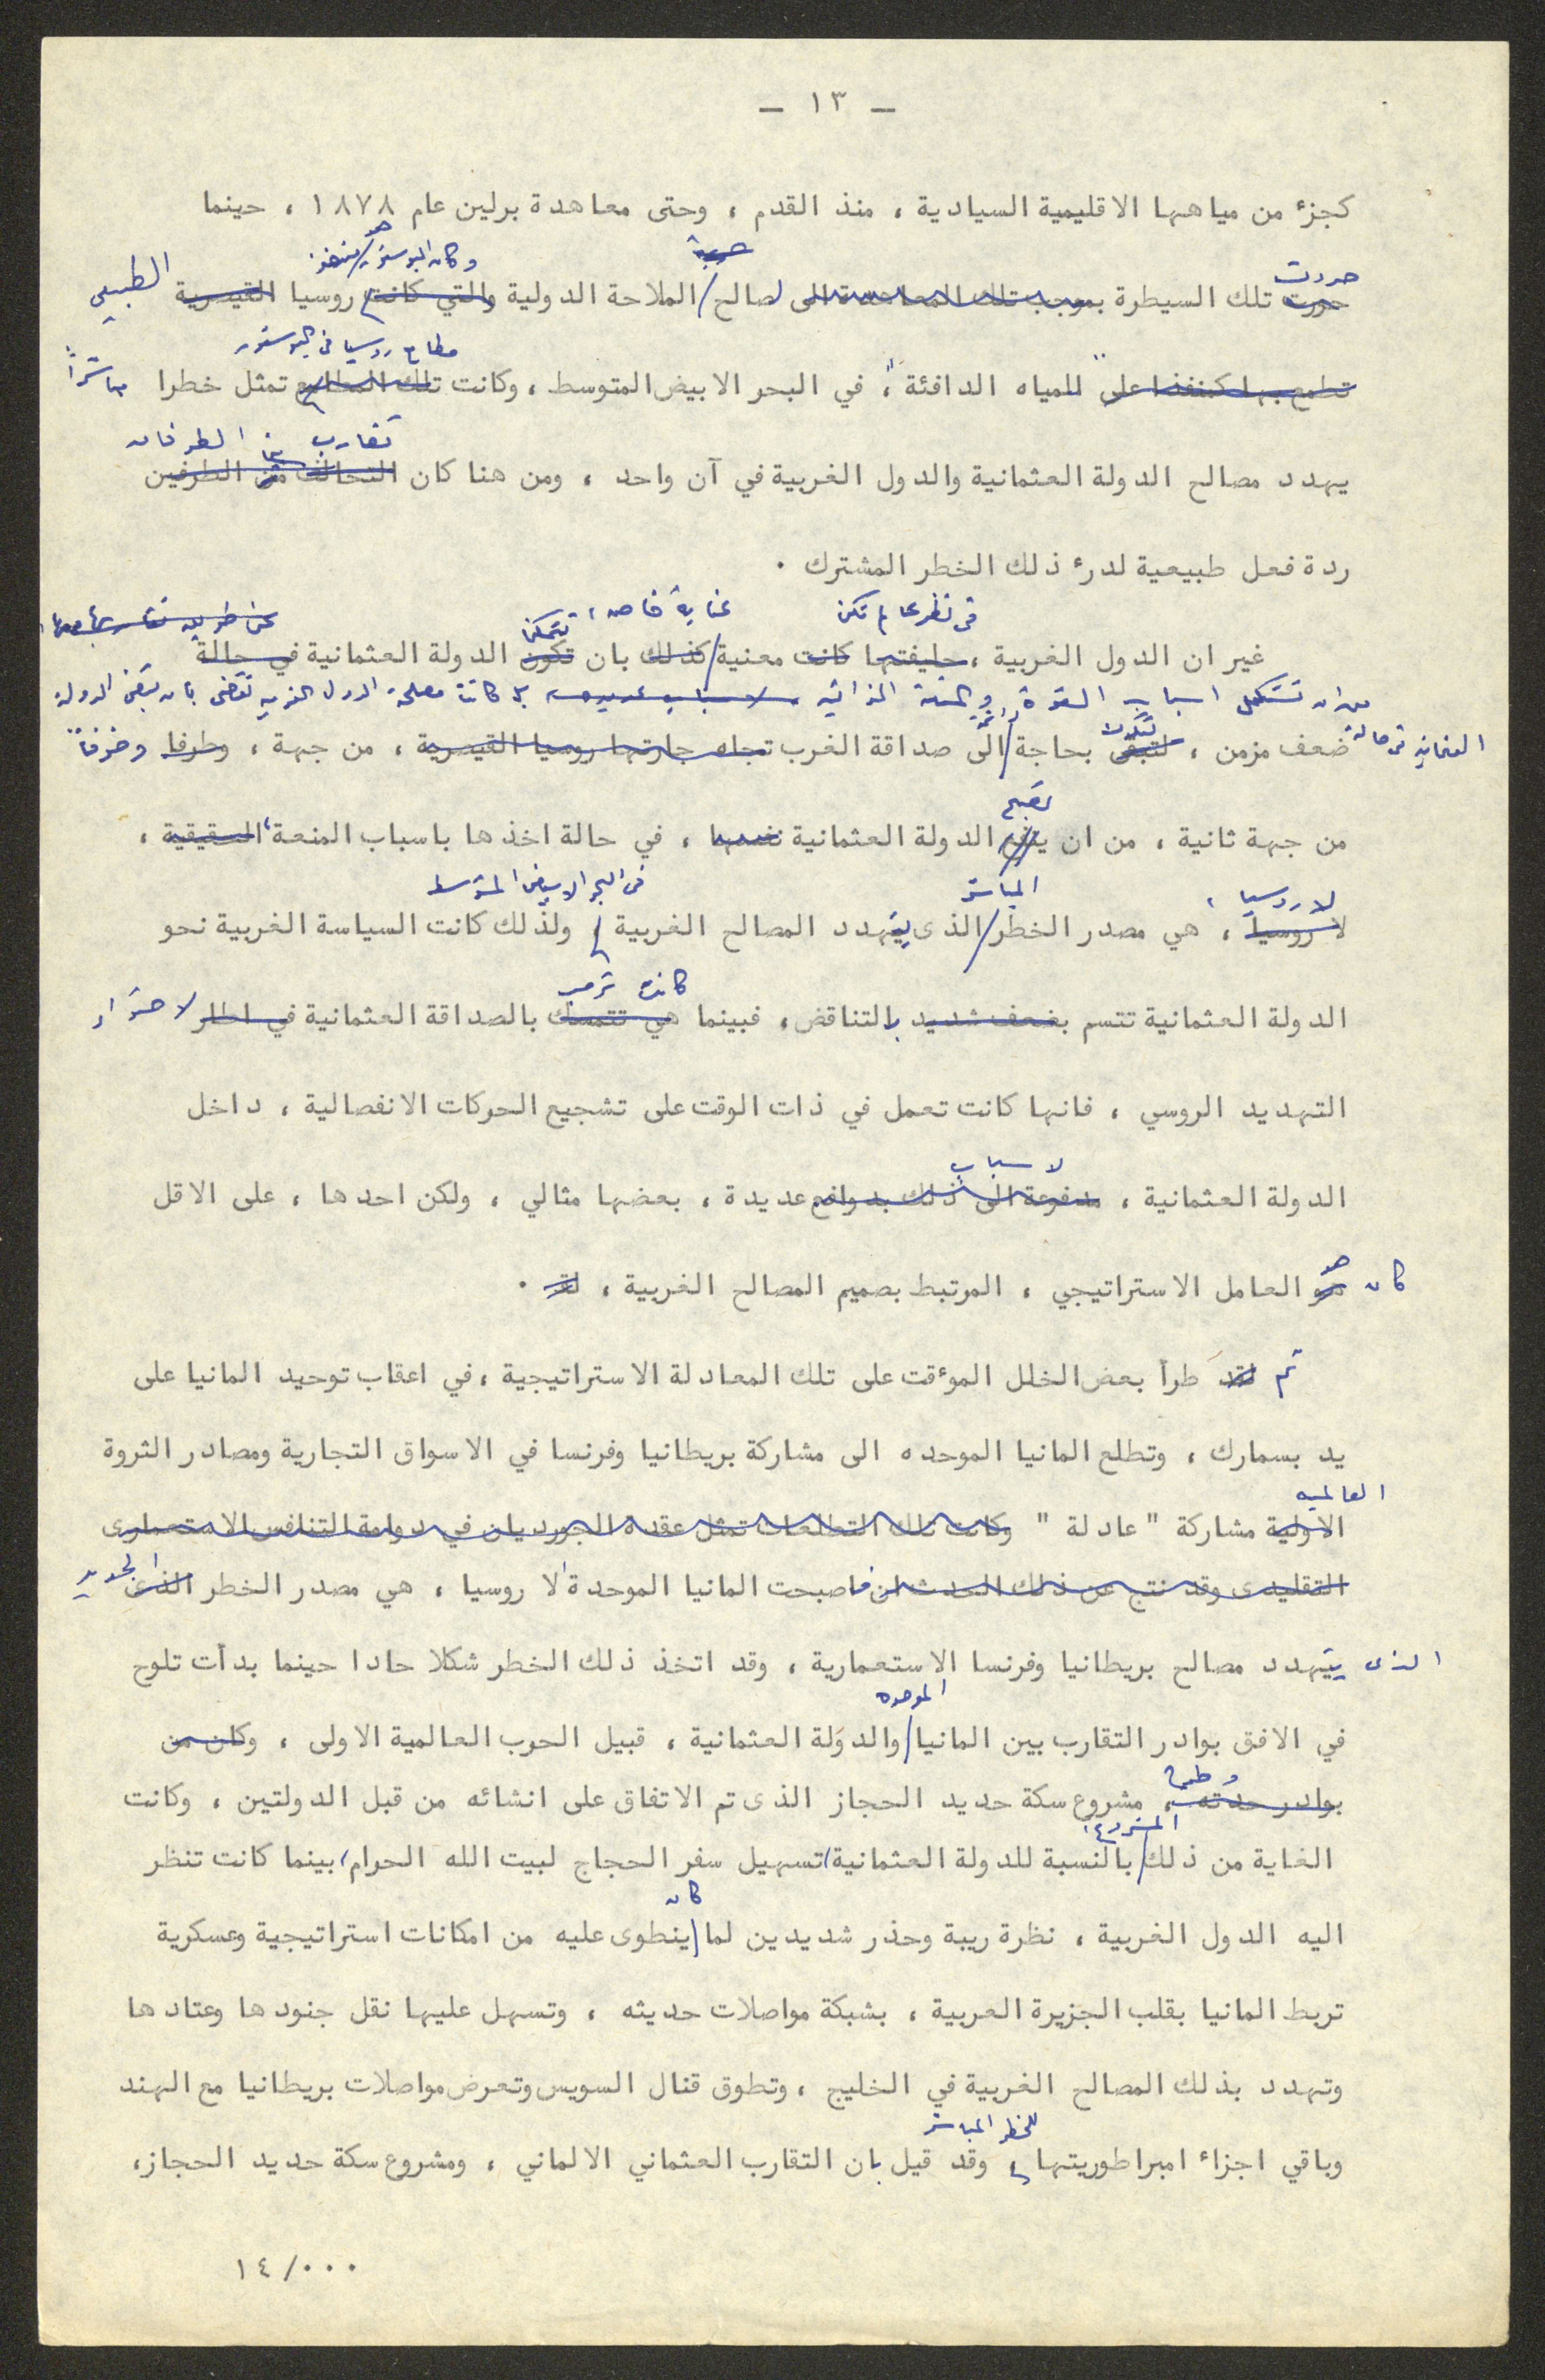 — ١٣ —
كجزء من مياهها الاقليمية السيادية ، منذ القدم ، وحتى معاهدة برلين عام ١٨٧٨ ، حينما
حرية وكان البوسفور هو منفذ
حررت حورت تلك السيطرة بموجب تلك المعاهدة الى لصالح الملاحة الدولية والتي كانت روسيا القيصرية الطبيعي
مطامح روسيا في البوسفور
تطمع بها كمنفذ اعلى " للمياه الدافئة " ، في البحر الابيض المتوسط ، وكانت تلك المطامع تمثل خطرا مباشراً
تقارب الطرفان
يهدد مصالح الدولة العثمانية والدول الغربية في آن واحد ، ومن هنا كان التحالف من الطرفين
ردة فعل طبيعية لدرء ذلك الخطر المشترك .
في نظرها لم تكن عناية خاصة ، تتمكن عن طريق
غير ان الدول الغربية ، حليفتها كانت معنية كذلك بان تكون الدولة العثمانية في حالة
من ان تستكمل اسباب القوة والمنعة الذاتية لاسباب عديدة كانت مصلحة الدول الغربية تقضي بان تبقى الدولة
العثمانية في حالة ضعف مزمن ، لتبقى لتكون بحاجة دائمة الى صداقة الغرب تجاه جارتها روسيا القيصرية ، من جهة ، وطرفا وخوفاً
تصبح
من جهة ثانية ، من ان الدولة العثمانية نفسها ، في حالة اخذها باسباب المنعة الحقيقية ،
لا روسيا ، المباشر في البحر الابيض المتوسط
لا روسيا ، هي مصدر الخطر الذى يتهدد المصالح الغربية ولذلك كانت السياسة الغربية نحو
كانت ترحب
الدولة العثمانية تتسم بضعف شديد بالتناقض ، فبينما هي تتمسك بالصداقة العثمانية في اطار لاحتواء
التهديد الروسي ، فانها كانت تعمل في ذات الوقت على تشجيع الحركات الانفصالية ، داخل
لاسباب
الدولة العثمانية ، مدفوعة الى ذلك بدوافع عديدة ، بعضها مثالي ، ولكن احدها ، على الاقل
كان هو هو العامل الاستراتيجي ، المرتبط بصميم المصالح الغربية ، .
ثم لقد طرأ بعض الخلل الموءقت على تلك المعادلة الاستراتيجية ، في اعقاب توحيد المانيا على
يد بسمارك ، وتطلع المانيا الموحده الى مشاركة بريطانيا وفرنسا في الاسواق التجارية ومصادر الثروة
العالميه
الاولية مشاركة " عادلة " وكانت تلك التطلعات تمثل عقدة الجورديان في دوامة التنافس الاستعمارى
التقليدى وقد نتج عن ذلك الحدث ان فاصبحت المانيا الموحدة لا روسيا ، هي مصدر الخطر الذى الجديد
الذى يتهدد مصالح بريطانيا وفرنسا الاستعمارية ، وقد اتخذ ذلك الخطر شكلا حادا حينما بدأت تلوح
الموحده
في الافق بوادر التقارب بين المانيا والدولة العثمانية ، قبيل الحرب العالمية الاولى ، وكان من
بوادر حدته ، مشروع سكة حديد الحجاز الذى تم الاتفاق على انشائه من قبل الدولتين ، وكانت
المشروع ،
الغاية من ذلك بالنسبة للدولة العثمانية ، تسهيل سفر الحجاج لبيت الله الحرام ، بينما كانت تنظر
كان
اليه الدول الغربية ، نظرة ريبة وحذر شديدين لما ينطوى عليه من امكانات استراتيجية وعسكرية
تربط المانيا بقلب الجزيرة العربية ، بشبكة مواصلات حديثه ، وتسهل عليها نقل جنودها وعتادها
وتهدد بذلك المصالح الغربية في الخليج ، وتطوق قنال السويس وتعرض مواصلات بريطانيا مع الهند
للخطر المباشر
وباقي اجزاء امبراطوريتها ، وقد قيل بان التقارب العثماني الالماني ، ومشروع سكة حديد الحجاز ،
١٤/٠٠٠